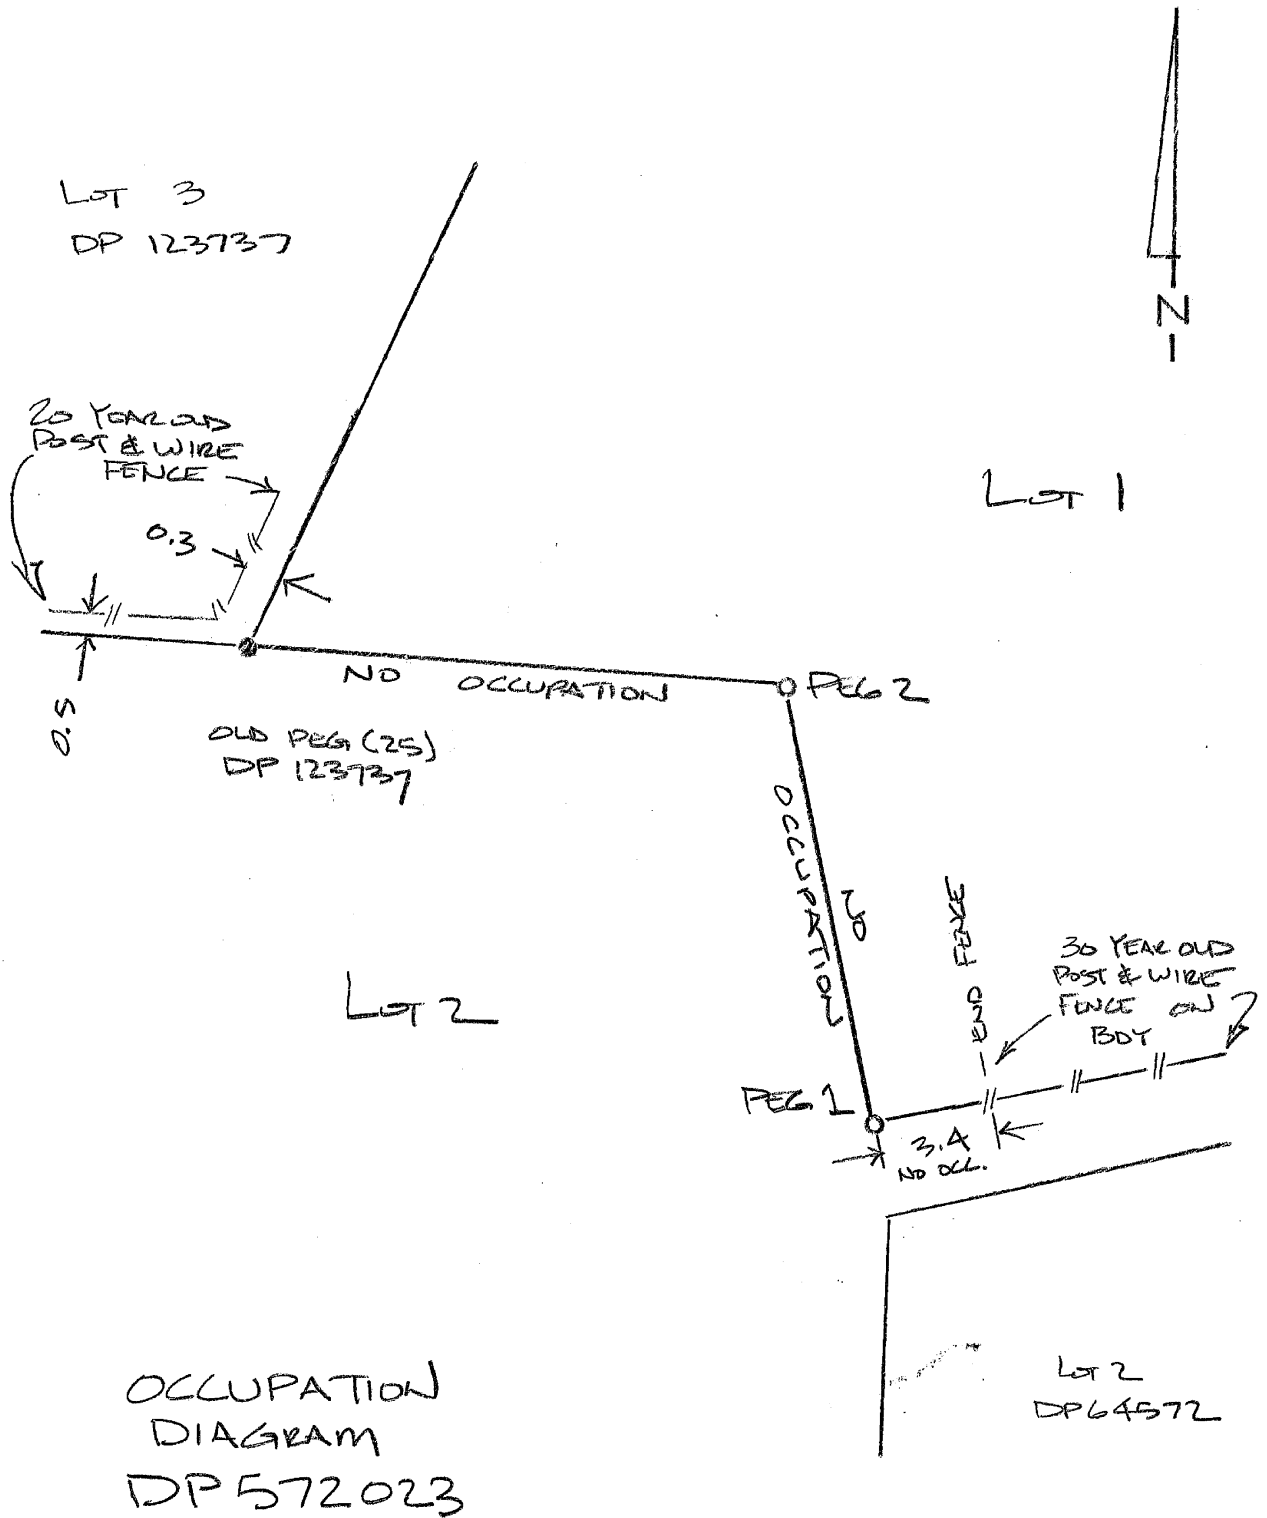 LOT 3
DP 123737
N
20 YEAR OLD
POST & WIRE
FENCE
0.3
LOT 1
0.5
NO OCCUPATION
PEG 2
OLD PEG (25)
DP 123737
NO
OCCUPATION
END FENCE
30 YEAR OLD
POST & WIRE
FENCE ON
BDY
LOT 2
PEG 1
3.4
NO OCC.
LOT 2
DP 64572
OCCUPATION
DIAGRAM
DP 572023